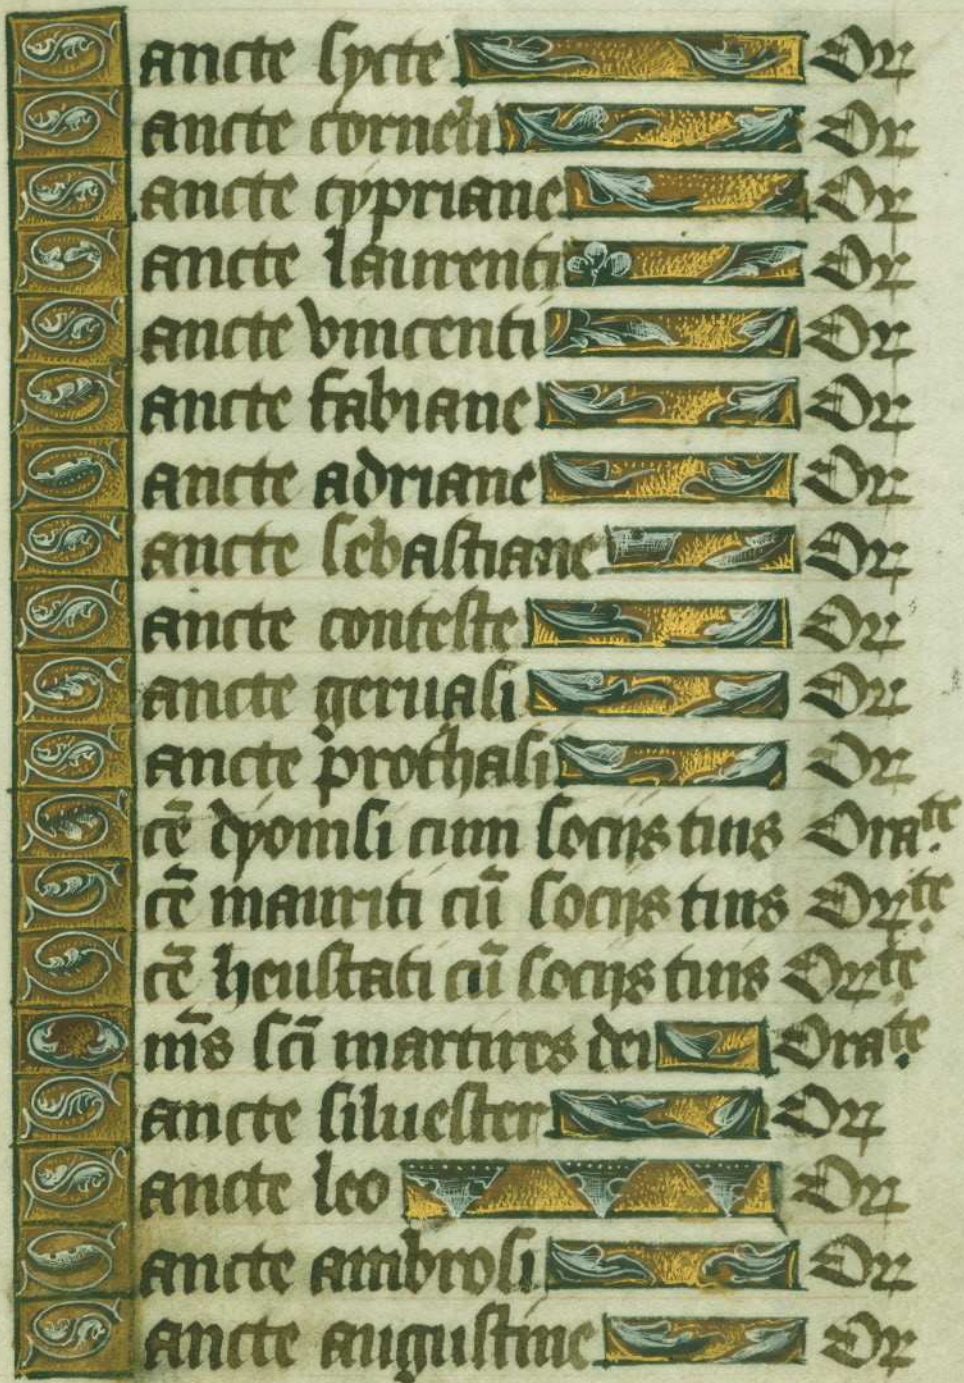 Sancte sycte Or
Sancte corneli Or
Sancte cypriane Or
Sancte laurenti Or
Sancte vincenti Or
Sancte fabiane Or
Sancte adriane Or
Sancte sebastiane Or
Sancte conteste Or
Sancte geruasi Or
Sancte prothasi Or
Scē dyonisi cum socijs tuis Orate.
Scē mauriti cū socijs tuis Orte.
Scē heustati cū socijs tuis Orte
Oms̄ scī martires dei Orate.
Sancte siluester Or
Sancte leo Or
Sancte ambrosi Or
Sancte augustine Or